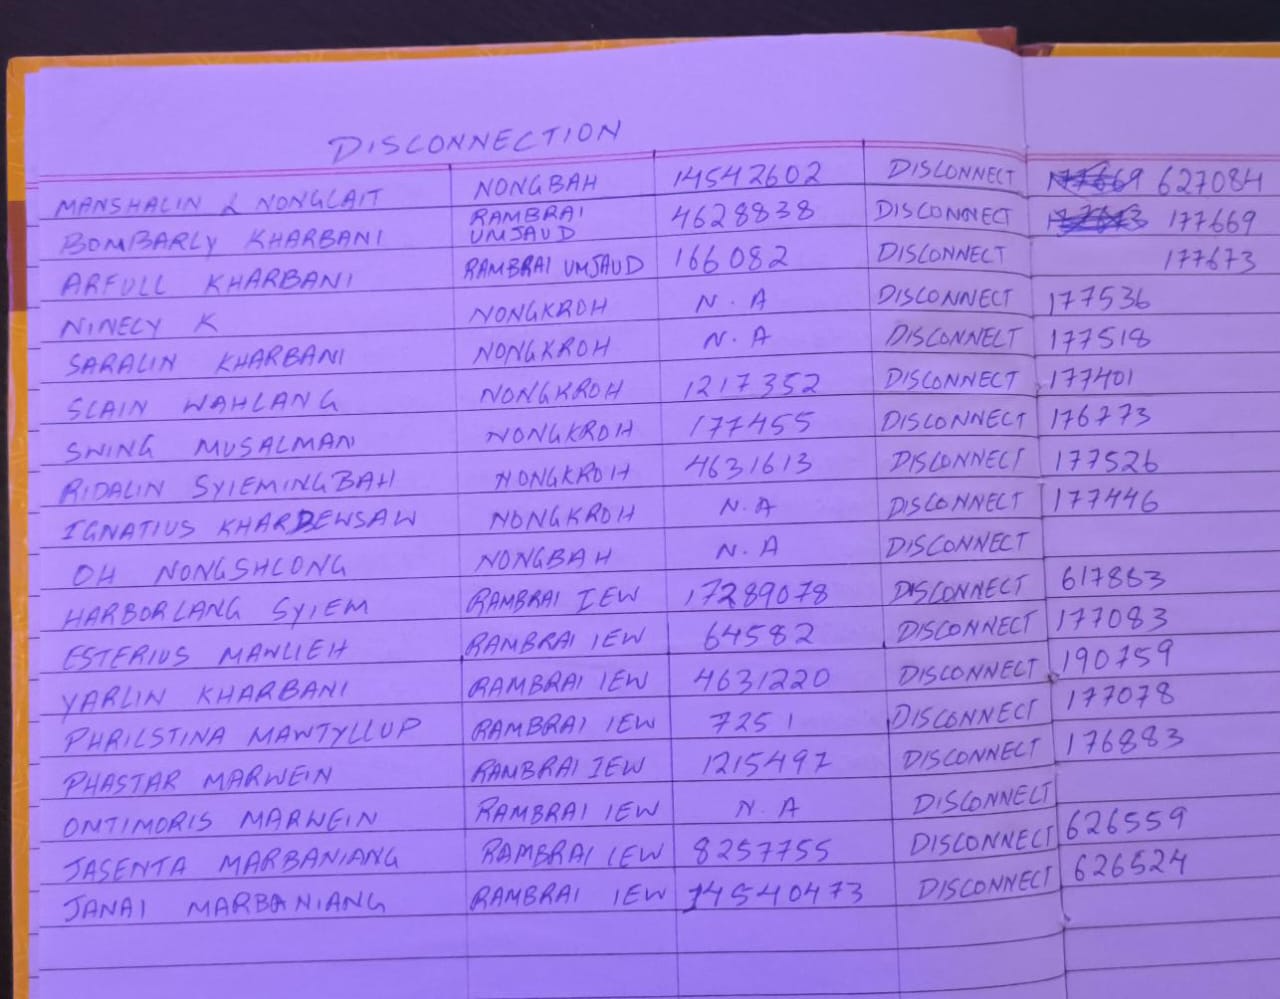 DISCONNECTION
MANSHALIN & NONGLAIT NONGBAH 14542602 DISCONNECT 627084
BOMBARLY KHARBANI RAMBRAI UMJAUD 4628838 DISCONNECT 177669
ARFULL KHARBANI RAMBRAI UMJAUD 166082 DISCONNECT 177673
NINELY K NONGKROH N.A DISCONNECT 177536
SARALIN KHARBANI NONGKROH N.A DISCONNECT 177518
SLAIN WAHLANG NONGKROH 1217352 DISCONNECT 177401
SWING MUSALMAN NONGKROH 177455 DISCONNECT 176773
RIDALIN SYIEMINGBAH NONGKROH 4631613 DISCONNECT 177526
IGNATIUS KHARDEWSAW NONGKROH N.A DISCONNECT 177446
OH NONGSHLONG NONGBAH N.A DISCONNECT
HARBORLANG SYIEM RAMBRAI IEW 17289078 DISCONNECT 617883
ESTERIUS MAWLIEH RAMBRAI IEW 64582 DISCONNECT 177083
YARLIN KHARBANI RAMBRAI IEW 4631220 DISCONNECT 190759
PHRILSTINA MAWTYLLUP RAMBRAI IEW 7251 DISCONNECT 177078
PHASTAR MARWEIN RAMBRAI IEW 1215497 DISCONNECT 176883
OMTIMORIS MARWEIN RAMBRAI IEW N.A DISCONNECT
JASENTA MARBANIANG RAMBRAI IEW 8257755 DISCONNECT 626559
JANAI MARBANIANG RAMBRAI IEW 14540473 DISCONNECT 626524